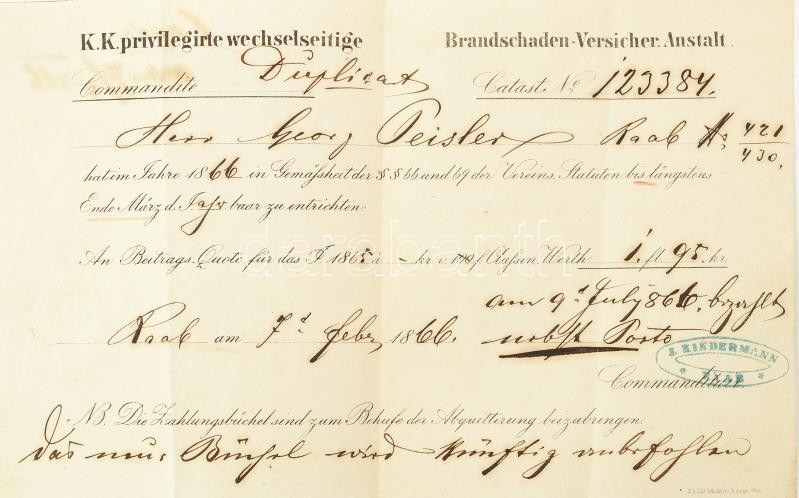 K.K. privilegirte wechselseitige Brandschaden-Versicher. Anstalt.
Commandite Duplicat Catast. No 123384.
Herr Georg Peisler Raab No 421/430.
hat im Jahre 1866 in Gemässheit der § § 66 und 69 der Vereins-Statuten bis längstens
Ende März d. Jahr baar zu entrichten:
An Beitrags-Quote für das J 1865 à - kr v. 100 f Classen Werth 1. fl. 95 kr
am 9t July 866. bezahlt
Raab am 7t Febr 1866. nebst Porto
J. KINDERMANN
RAAB
Commanditär.
NB. Die Zahlungsbüchel sind zum Behufe der Abquittirung beizubringen.
Das neue Büchel wird künftig anbefohlen
darabanth